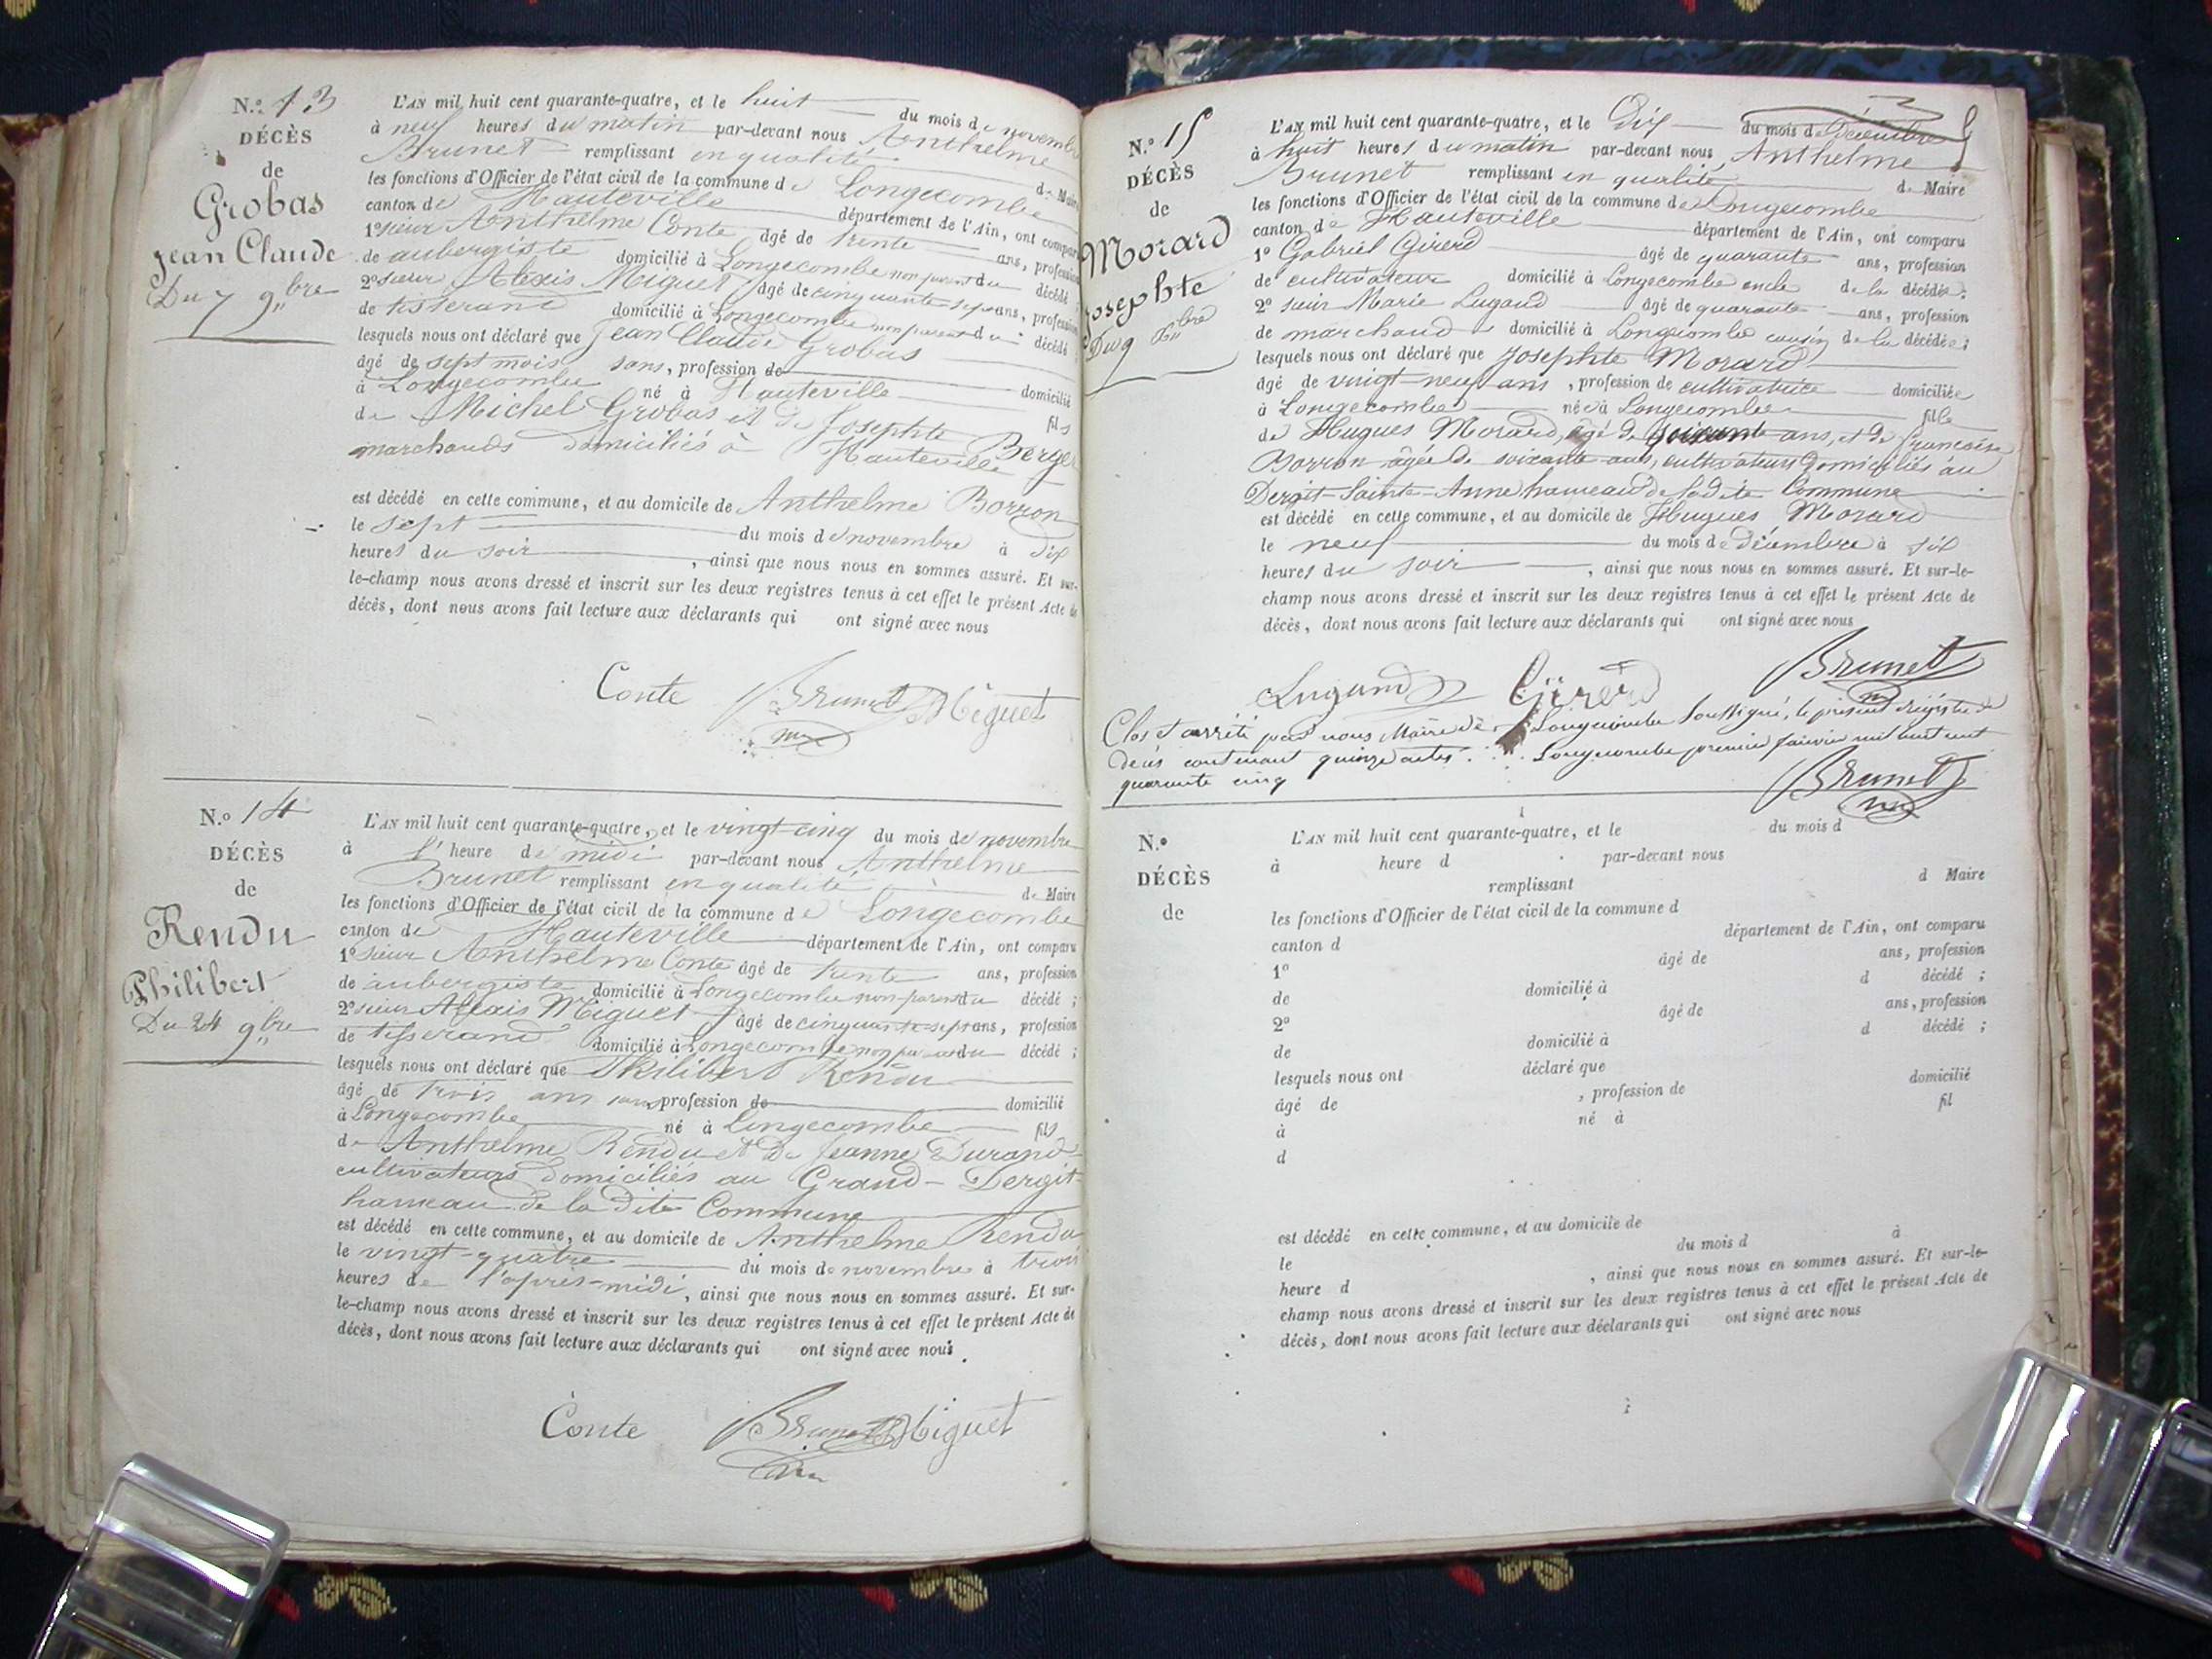 N.º 13
DÉCÈS
de
Grobas
Jean Claude
Du 7 9.bre
L'AN mil huit cent quarante-quatre, et le huit du mois de novembre
à neuf heures du matin par-devant nous Anthelme
Brunet remplissant en qualité de Maire
les fonctions d'Officier de l'état civil de la commune de Longecombe
canton de Hauteville département de l'Ain, ont comparu
1º sieur Anthelme Conte âgé de trente ans, profession
de aubergiste domicilié à Longecombe non parent du décédé
2º sieur Alexis Miguet âgé de cinquante-sept ans, profession
de tisserand domicilié à Longecombe non parent du décédé
lesquels nous ont déclaré que Jean Claude Grobas
âgé de sept mois sans, profession de domicilié
à Longecombe né à Hauteville fils
de Michel Grobas et de Josephte Berger
marchands domiciliés à Hauteville
est décédé en cette commune, et au domicile de Anthelme Borron
le sept du mois de novembre à six
heures du soir, ainsi que nous nous en sommes assuré. Et sur-
le-champ nous avons dressé et inscrit sur les deux registres tenus à cet effet le présent Acte de
décès, dont nous avons fait lecture aux déclarants qui ont signé avec nous
Conte Brunet Miguet
N.º 14
DÉCÈS
de
Rendu
Philibert
Du 24 9.bre
L'AN mil huit cent quarante-quatre, et le vingt-cinq du mois de novembre
à l'heure de midi par-devant nous Anthelme
Brunet remplissant en qualité de Maire
les fonctions d'Officier de l'état civil de la commune de Longecombe
canton de Hauteville département de l'Ain, ont comparu
1º sieur Anthelme Conte âgé de trente ans, profession
de aubergiste domicilié à Longecombe non parent du décédé ;
2º sieur Alexis Miguet âgé de cinquante-sept ans, profession
de tisserand domicilié à Longecombe non parent du décédé ;
lesquels nous ont déclaré que Philibert Rendu
âgé de trois ans sans profession de domicilié
à Longecombe né à Longecombe fils
de Anthelme Rendu et de Jeanne Durand
cultivateurs domiciliés au Grand-Dergit
hameau de la dite Commune
est décédé en cette commune, et au domicile de Anthelme Rendu
le vingt-quatre du mois de novembre à trois
heures de l'après-midi, ainsi que nous nous en sommes assuré. Et sur-
le-champ nous avons dressé et inscrit sur les deux registres tenus à cet effet le présent Acte de
décès, dont nous avons fait lecture aux déclarants qui ont signé avec nous.
Conte Brunet Miguet
N.º 15
DÉCÈS
de
Morard
Josephte
Du 9 Xbre
L'AN mil huit cent quarante-quatre, et le dix du mois de décembre
à huit heures du matin par-devant nous Anthelme
Brunet remplissant en qualité de Maire
les fonctions d'Officier de l'état civil de la commune de Longecombe
canton de Hauteville département de l'Ain, ont comparu
1º Gabriel Girerd âgé de quarante ans, profession
de cultivateur domicilié à Longecombe oncle de la décédée ;
2º sieur Marie Lugand âgé de quarante ans, profession
de marchand domicilié à Longecombe cousin de la décédée ;
lesquels nous ont déclaré que Josephte Morard
âgé de vingt-neuf ans, profession de cultivatrice domiciliée
à Longecombe née à Longecombe fille
de Hugues Morard, âgé de soixante ans, et de Françoise
Borron âgée de soixante ans, cultivateurs domiciliés au
Dergit-Sainte-Anne hameau de la dite Commune
est décédé en cette commune, et au domicile de Hugues Morard
le neuf du mois de décembre à six
heures du soir, ainsi que nous nous en sommes assuré. Et sur-le-
champ nous avons dressé et inscrit sur les deux registres tenus à cet effet le présent Acte de
décès, dont nous avons fait lecture aux déclarants qui ont signé avec nous
Lugand Girerd Brunet
Clos et arrêté par nous Maire de Longecombe soussigné, le présent régistre de
décès contenant quinze actes. Longecombe premier janvier mil huit cent
quarante cinq
Brunet
N.º
DÉCÈS
de
L'AN mil huit cent quarante-quatre, et le du mois d
à heure d par-devant nous
remplissant d Maire
les fonctions d'Officier de l'état civil de la commune d
canton d département de l'Ain, ont comparu
1º âgé de ans, profession
de domicilié à d décédé ;
2º âgé de ans, profession
de domicilié à d décédé ;
lesquels nous ont déclaré que
âgé de , profession de domicilié
à né à fil
d
est décédé en cette commune, et au domicile de
le du mois d à
heure d , ainsi que nous nous en sommes assuré. Et sur-le-
champ nous avons dressé et inscrit sur les deux registres tenus à cet effet le présent Acte de
décès, dont nous avons fait lecture aux déclarants qui ont signé avec nous